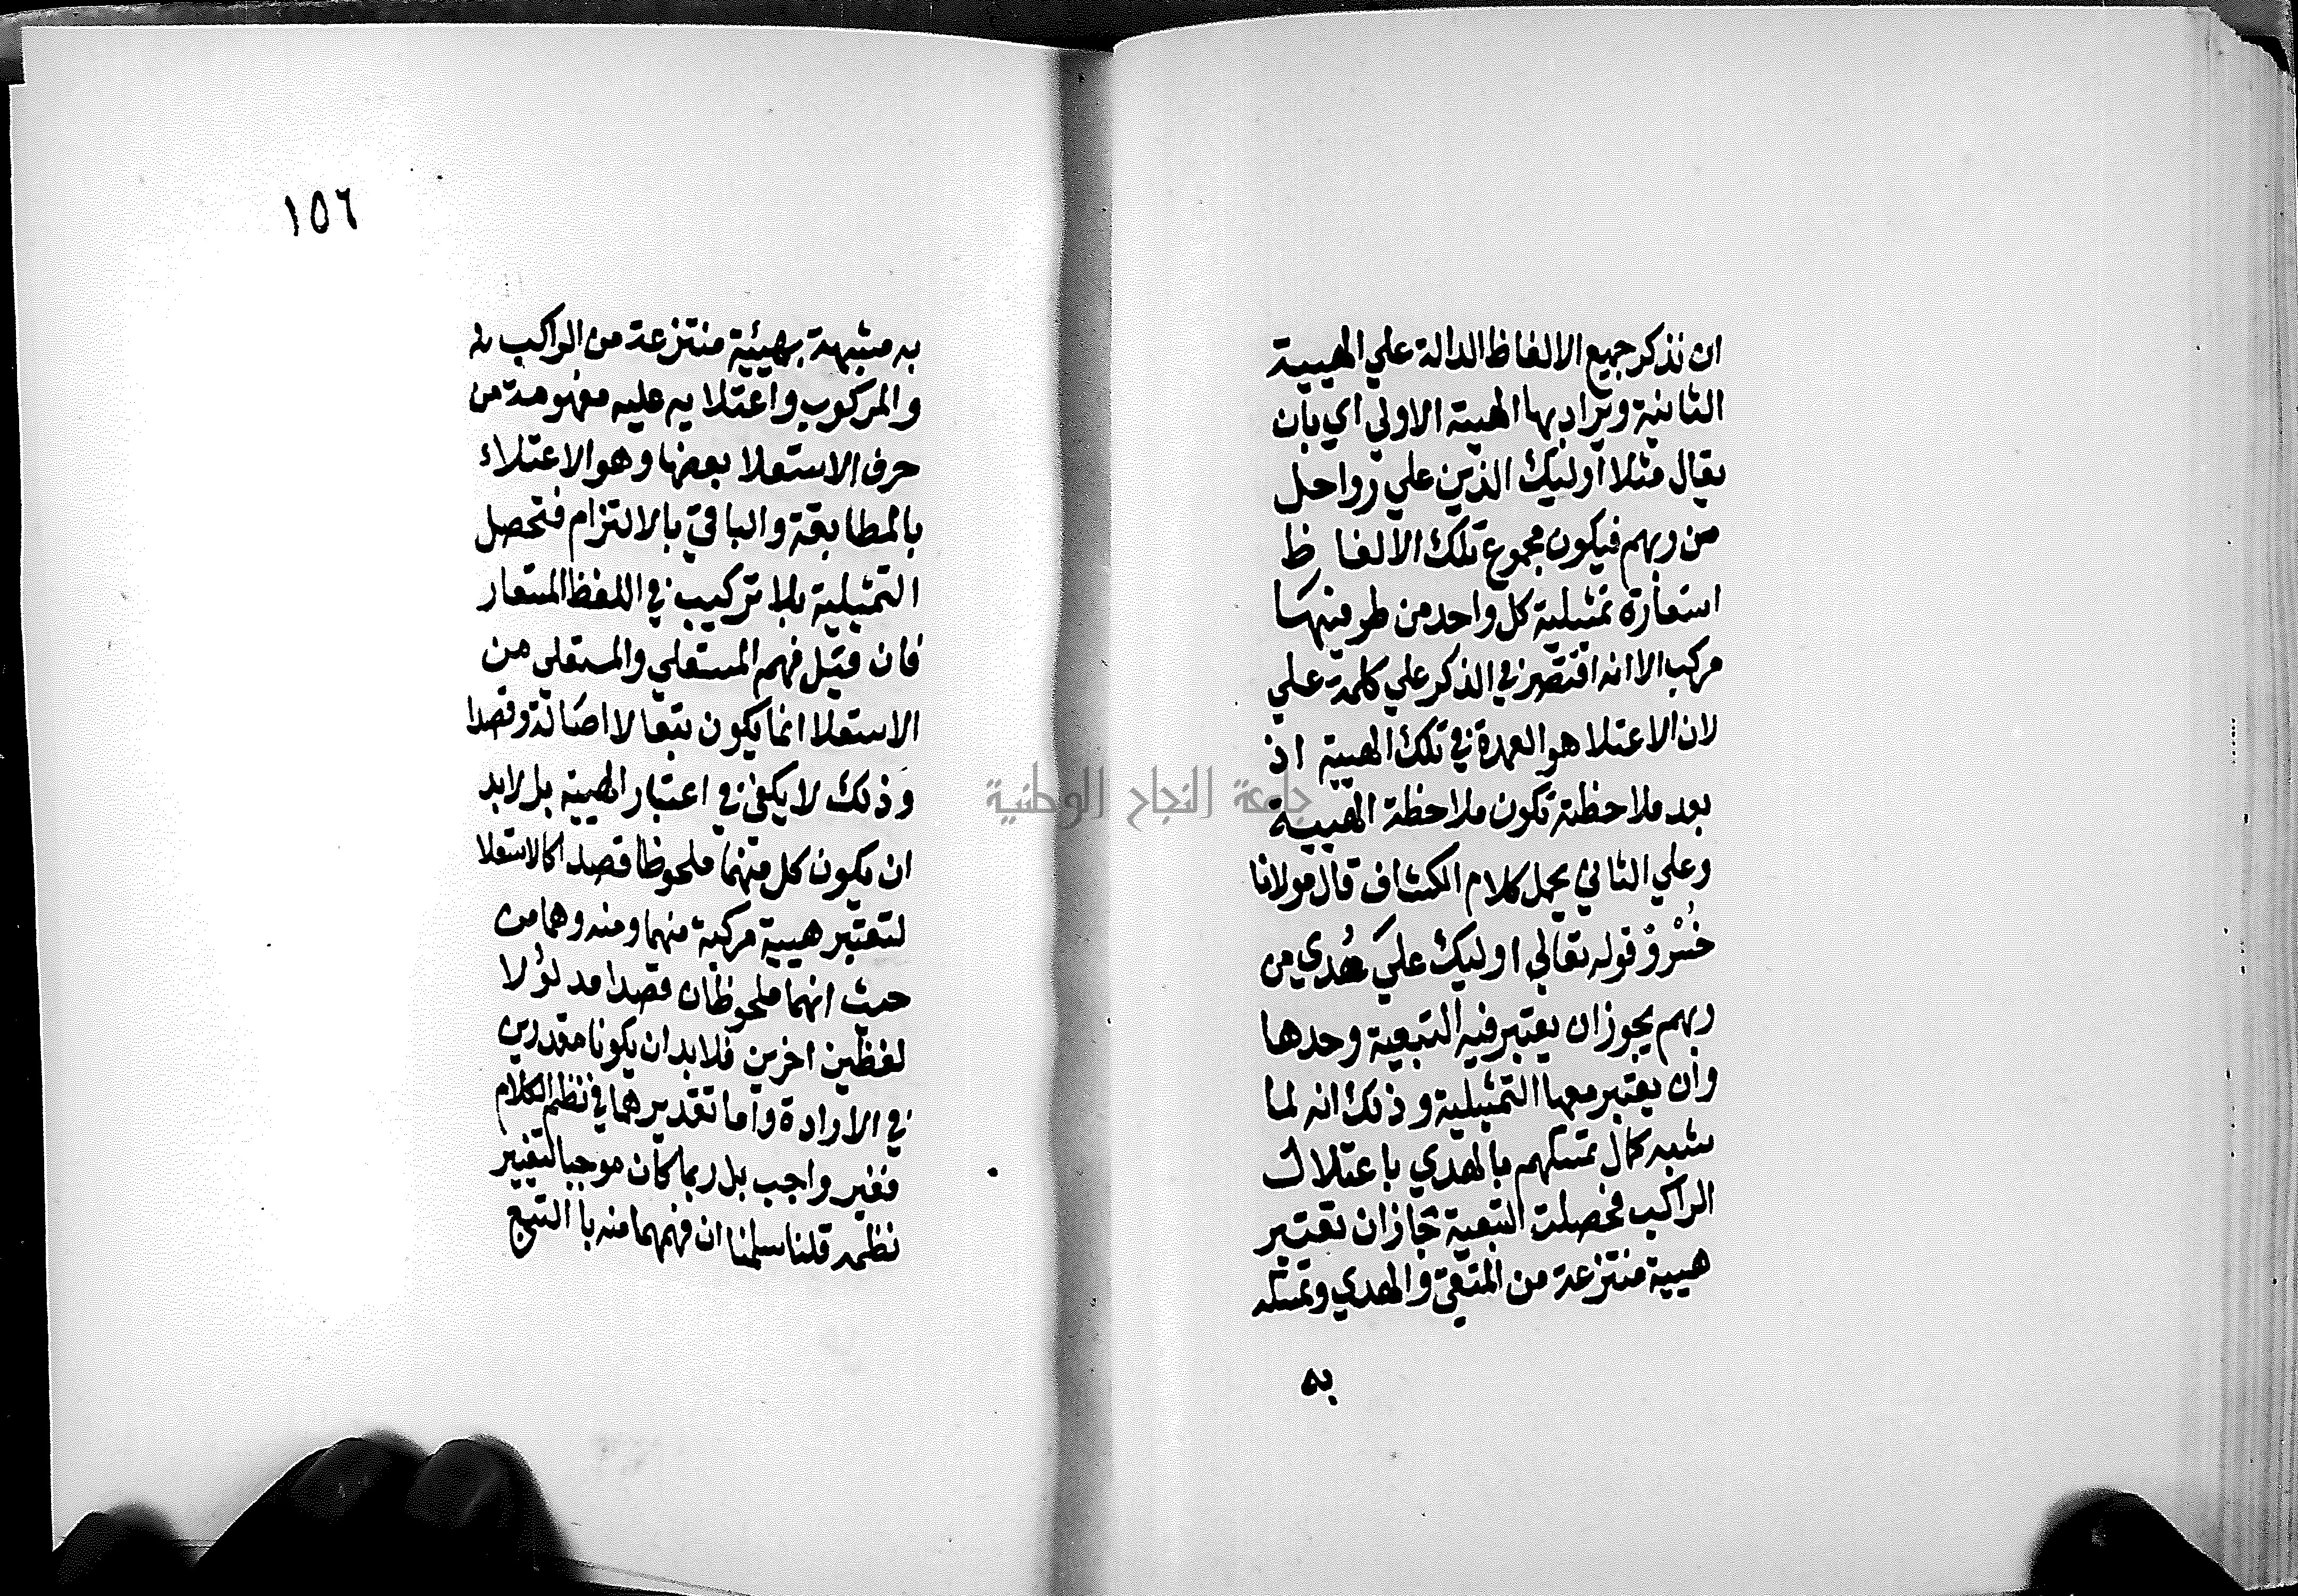 ان نذكر جميع الالفاظ الدالة علي الهيية
الثانية وتراد بها الهيية الاولي اي بان
يقال مثلا اوليك الذين علي رواحل
من ربهم فيكون مجموع تلك الالفاظ
استعارة تمثيلية كل واحد من طرفيها
مركب الا انه اقتصر في الذكر علي كلمة علي
لان الاعتلا هو العمدة في تلك الهيية اذ
بعد ملاحظته تكون ملاحظة الهيية
وعلي الثاني يحمل كلام الكشاف قال مولانا
خُسْروْ قوله تعالي اوليك علي هُدي من
ربهم يجوز ان يعتبر فيه التبعية وحدها
وان يعتبر معها التمثيلية وذلك انه لما
شبه كمال تمسكهم بالهدي باعتلاء
الراكب فحصلت التبعية جاز ان تعتبر
هيية منتزعة من المتقي والهدي وتمسكه
به
١٥٦
به مشبهة بهيئية منتزعة من الراكب
والمركوب واعتلايه عليه مفهومة من
حرف الاستعلا بعضها وهو الاعتلاء
بالمطابقة والباقي بالالتزام فتحصل
التمثيلية بلا تركيب في اللفظ المستعار
فان قيل فهم المستعلي والمستعلى من
الاستعلا انما يكون تبعا لا اصالة وقصدا
وذلك لا يكفي في اعتبار الهيية بل لابد
ان يكون كل منهما ملحوظا قصدا كالاستعلا
لتعتبر هيية مركبة منهما ومنه وهما من
حيث انهما ملحوظان قصدا مدلولا
لفظين اخرين فلابد ان يكونا مقدرين
في الارادة واما تقديرهما في نظم الكلام
فغير واجب بل ربما كان موجبا لتغيير
نظمه قلنا سلمنا ان فهمهما منه با التبع
جامعة النجاح الوطنية